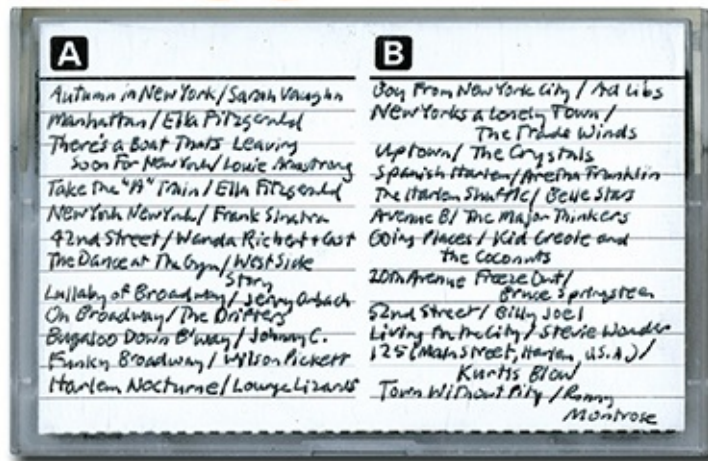 A
Autumn in New York/Sarah Vaughn
Manhattan/Ella Fitzgerald
There's a Boat Thats Leaving
Soon For New York/Louie Armstrong
Take the "A" Train/Ella Fitzgerald
New York New York/Frank Sinatra
42nd Street/Wanda Richert + Cast
The Dance at The Gym/West Side
Story
Lullaby of Broadway/Jerry Orbach
On Broadway/The Drifters
Bugaloo Down B'way/Johnny C.
Funky Broadway/Wilson Pickett
Harlem Nocturne/Lounge Lizards
B
Boy From New York City/Ad Libs
New Yorks a Lonely Town/
The Trade Winds
Uptown/The Crystals
Spanish Harlem/Aretha Franklin
The Harlem Shuffle/Belle Stars
Avenue B/The Major Thinkers
Going Places/Kid Creole and
the Coconuts
10th Avenue Freeze Out/
Bruce Springsteen
52nd Street/Billy Joel
Living For the City/Stevie Wonder
125 (Main Street, Harlem, U.S.A.)/
Kurtis Blow
Town Without Pity/Ronny
Montrose